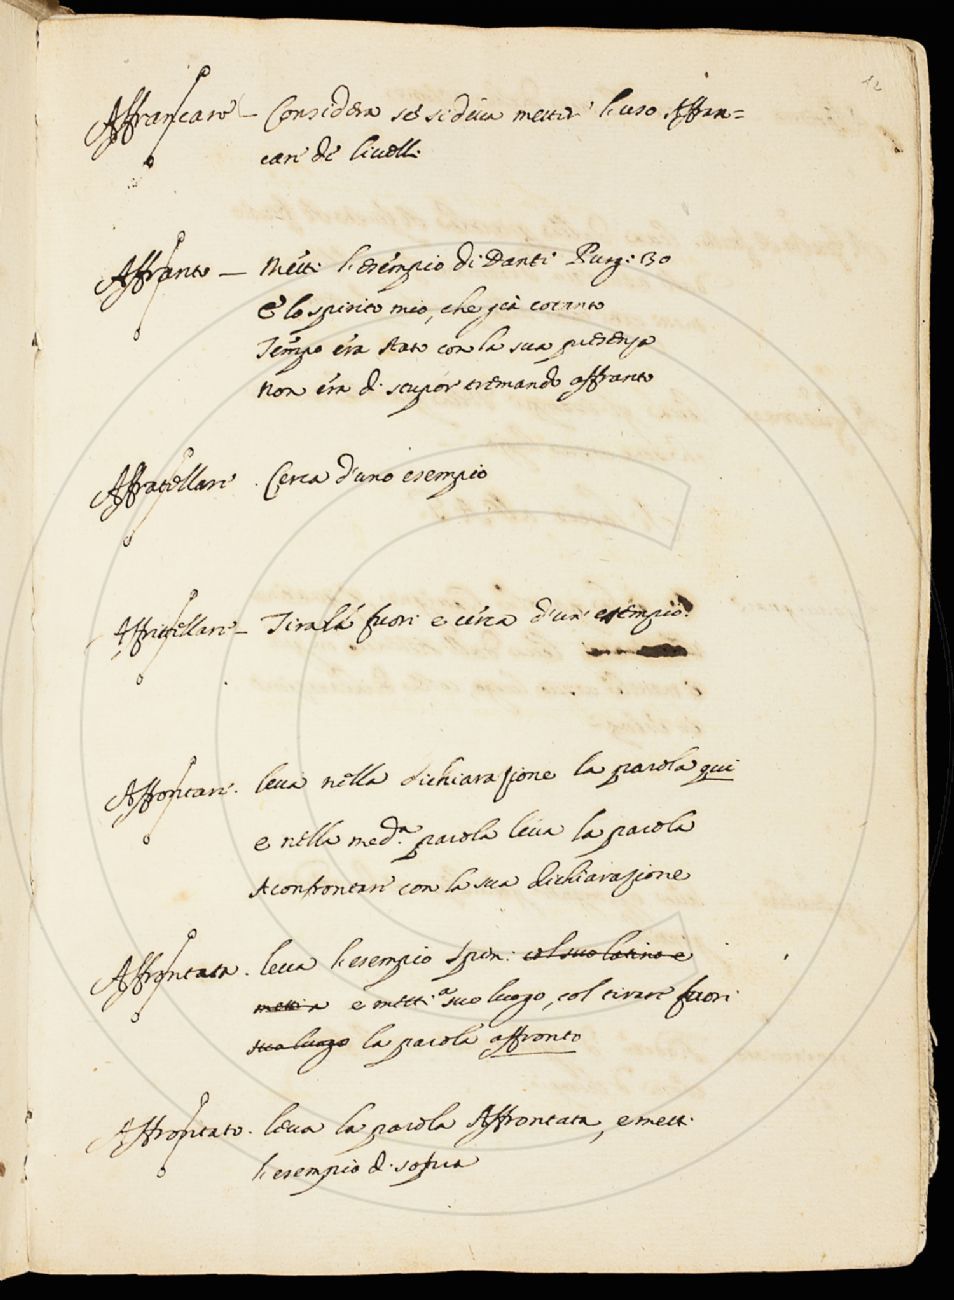 12
Affrancare – Considera se si deva metter l'uso Affran=
car de livelli
Affranto – Metti l'esempio di Dante Purg: 30
E lo spirito mio, che già cotanto
Tempo era stato con la sua presenza
Non era di stupor tremando affranto
Affratellare Cerca d'uno esempio
Affrittellare – Tirala fuori e cerca d'un esempio
Affrontare. leva nella dichiarazione la parola qui
e nella med.a parola leva la parola
A confrontare con la sua dichiarazione
Affrontata. leva l'esempio Spin: col suo latino e
metti a e metti a suo luogo, col tirare fuori
suo luogo la parola affronto
Affrontato. leva la parola Affrontata, e metti
l'esempio di sopra